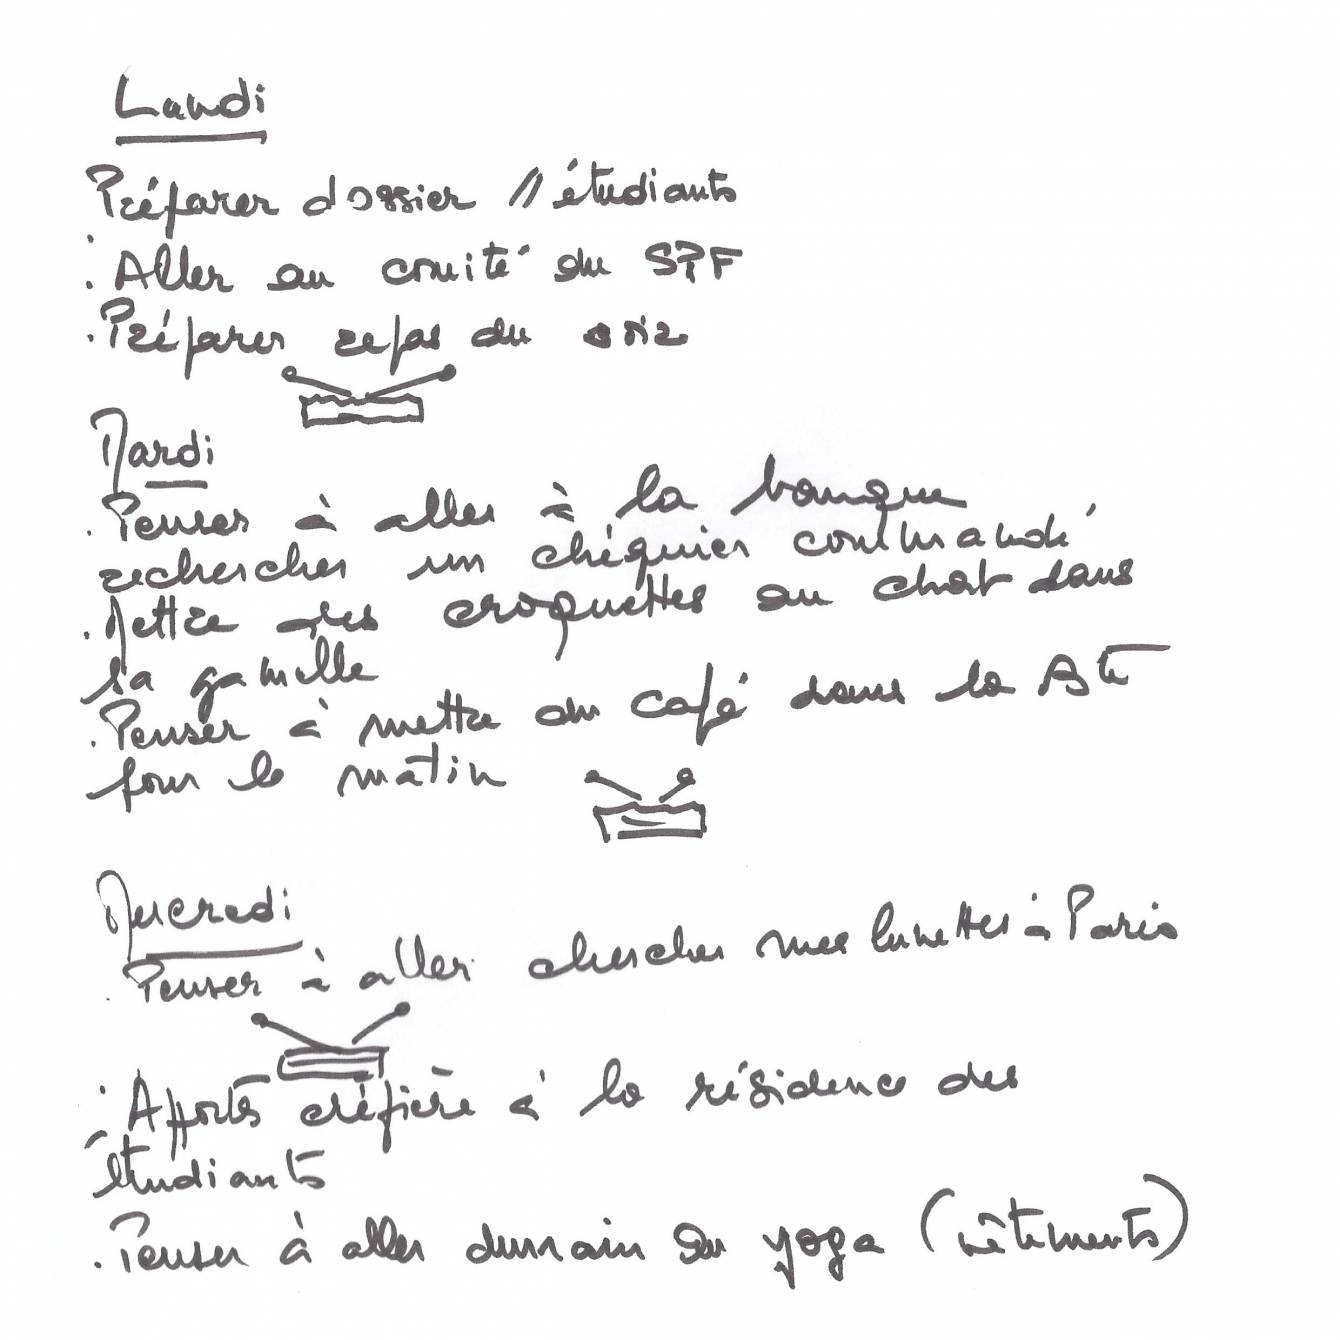 Lundi
Préparer dossier // étudiants
. Aller au comité du SPF
. Préparer repas du soir
Mardi
. Penser à aller à la banque
rechercher un chéquier commandé
. Mettre des croquettes au chat dans
sa gamelle
. Penser à mettre du café dans la Bte
pour le matin
Mercredi
. Penser à aller chercher mes lunettes à Paris
. Apporter crépière à la résidence des
étudiants
. Penser à aller demain au yoga (vêtements)